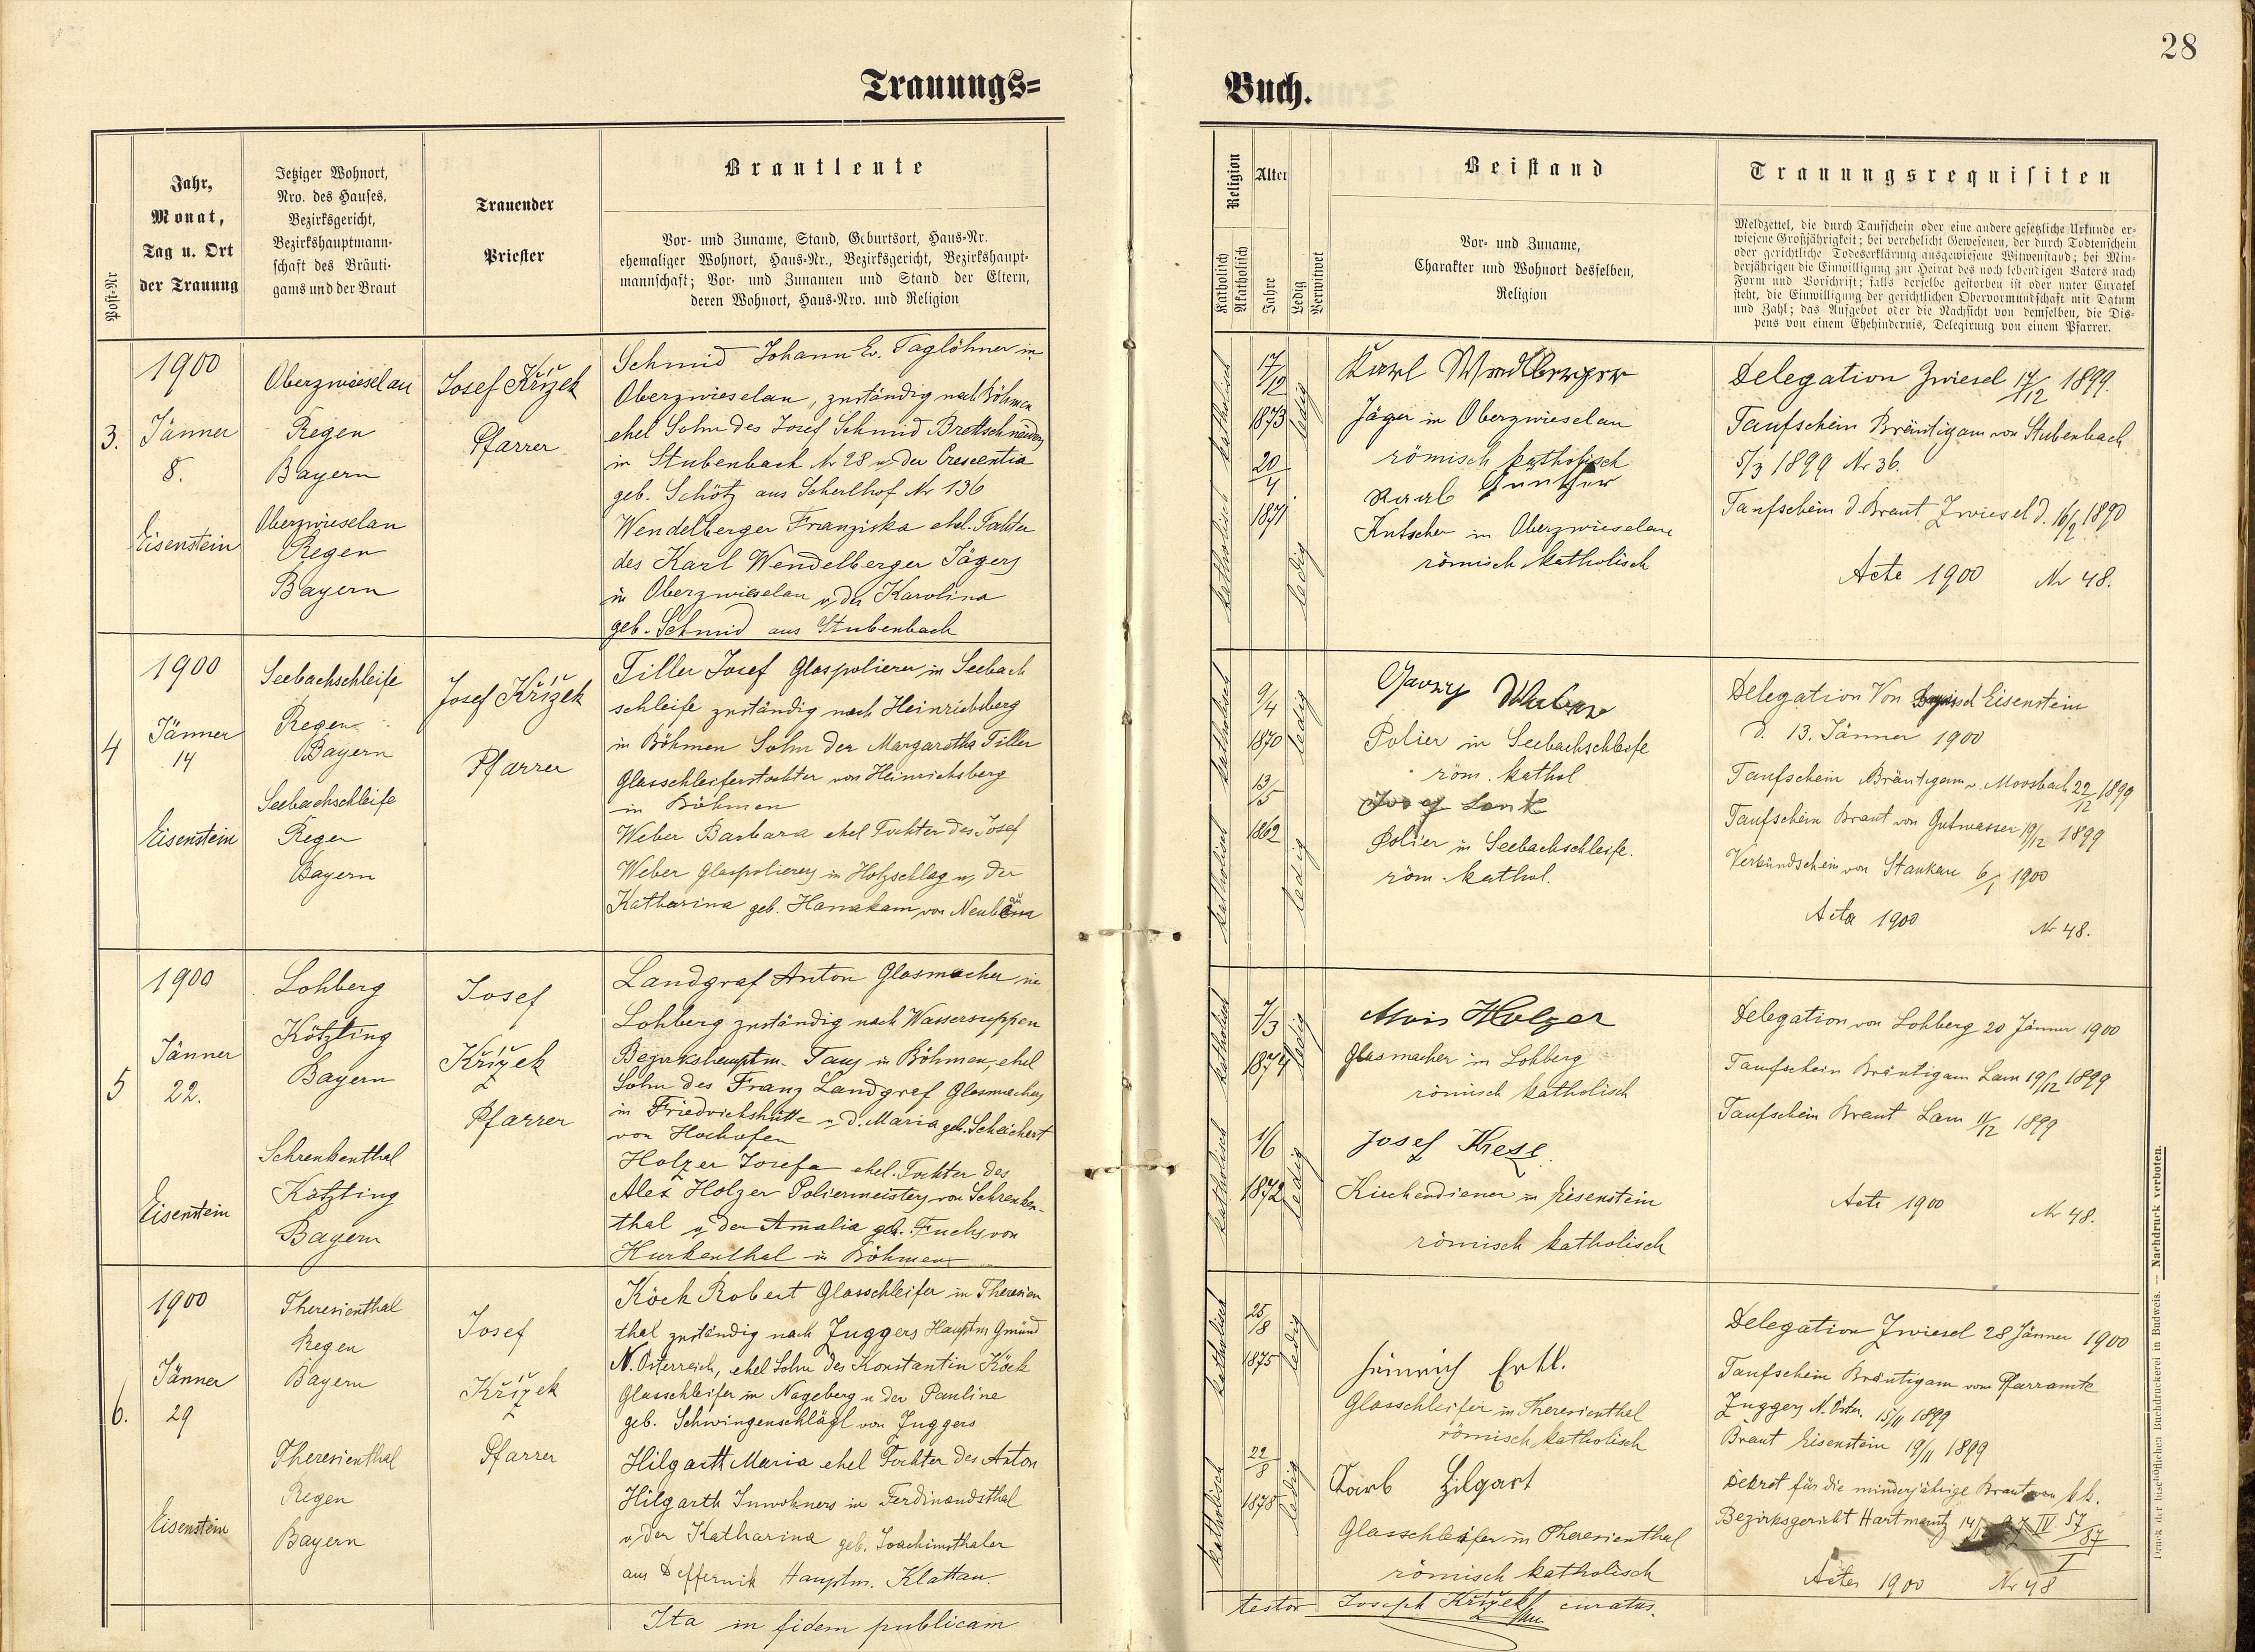 28
Trauungs=
Buch.
Post-Nr
Jahr,
Monat,
Tag u. Ort
der Trauung
Jetziger Wohnort,
Nro. des Hauses,
Bezirksgericht,
Bezirkshauptmann-
schaft des Bräuti-
gams und der Braut
Trauender
Priester
Brautleute
Vor- und Zuname, Stand, Geburtsort, Haus-Nr.
ehemaliger Wohnort, Haus-Nr., Bezirksgericht, Bezirkshaupt-
mannschaft; Vor- und Zunamen und Stand der Eltern,
deren Wohnort, Haus-Nro. und Religion
Religion
Katholisch
Akatholisch
Alter
Jahre
Ledig
Verwitwet
Beistand
Vor- und Zuname,
Charakter und Wohnort desselben,
Religion
Trauungsrequisiten
Meldzettel, die durch Taufschein oder eine andere gesetzliche Urkunde er-
wiesene Großjährigkeit; bei verehelicht Gewesenen, der durch Todtenschein
oder gerichtliche Todeserklärung ausgewiesene Witwenstand; bei Min-
derjährigen die Einwilligung zur Heirat des noch lebendigen Vaters nach
Form und Vorschrift; falls derselbe gestorben ist oder unter Curatel
steht, die Einwilligung der gerichtlichen Obervormundschaft mit Datum
und Zahl; das Aufgebot oder die Nachsicht von demselben, die Dis-
pens von einem Ehehindernis, Delegirung von einem Pfarrer.
3.
1900
Jänner
8.
Eisenstein
Oberzwieselau
Regen
Bayern
Oberzwieselau
Regen
Bayern
Josef Křížek
Pfarrer
Schmid Johann Ev. Taglöhner in
Oberzwieselau, zuständig nach Böhmen
ehel Sohn des Josef Schmid Brettschneiders
in Stubenbach Nr 28 u. der Crescentia
geb. Schötz aus Scherlhof Nr 136
Wendelberger Franziska ehel. Tochter
des Karl Wendelberger Jägers
in Oberzwieselau u. der Karolina
geb. Schmid aus Stubenbach
katholisch
17/12
1873
ledig
katholisch
20/4
1871
ledig
Karl Wendlberger
Jäger in Oberzwieselau
römisch katholisch
Karl Günther
Kutscher in Oberzwieselau
römisch katholisch
Delegation Zwiesel 17/12 1899.
Taufschein Bräutigam von Stubenbach
5/3 1899 Nr 36.
Taufschein d. Braut Zwiesel d. 16/2 1890
Acte 1900 Nr 48.
4
1900
Jänner
14
Eisenstein
Seebachschleife
Regen
Bayern
Seebachschleife
Regen
Bayern
Josef Křížek
Pfarrer
Tiller Josef Glaspolierer in Seebach
schleife zuständig nach Heinrichsberg
in Böhmen Sohn der Margaretha Tiller
Glasschleiferstochter von Heinrichsberg
in Böhmen
Weber Barbara ehel Tochter des Josef
Weber Glaspolierers in Holzschlag u. der
Katharina geb. Hanakam von
katholisch
9/4
1870
ledig
katholisch
13/5
1862
ledig
Weber
Polier in Seebachschleife
röm. kathol
Lonk
Polier in Seebachschleife.
röm. kathol.
Delegation Von Eisenstein
d. 13. Jänner 1900
Taufschein Bräutigam v. Moosbach 22/12 1899
Taufschein Braut von Gutwasser 19/12 1899
Verkündschein von Stankau 6/1 1900
Acta 1900 Nr 48.
5
1900
Jänner
22.
Eisenstein
Lohberg
Kötzting
Bayern
Schrenkenthal
Kötzting
Bayern
Josef
Křížek
Pfarrer
Landgraf Anton Glasmacher in
Lohberg zuständig nach Wassersuppen
Bezirkshauptm. Taus in Böhmen, ehel
Sohn des Franz Landgraf Glasmachers
in Friedrichshütte u. d. Maria geb. Scheichert
von Hochofen
Holzer Josefa ehel. Tochter des
Alex Holzer Poliermeisters von Schrenken-
thal u. der Amalia geb. Fuchs von
Hurkenthal in Böhmen
katholisch
7/3
1874
ledig
katholisch
1/6
1872
ledig
Alois Holzer
Glasmacher in Lohberg
römisch katholisch
Josef Kiesl.
Kirchendiener in Eisenstein
römisch katholisch
Delegation von Lohberg 20 Jänner 1900
Taufschein Bräutigam Lam 19/12 1899
Taufschein Braut Lam 11/12 1899
Acte 1900 Nr 48.
6.
1900
Jänner
29
Eisenstein
Theresienthal
Regen
Bayern
Theresienthal
Regen
Bayern
Josef
Křížek
Pfarrer
Köck Robert Glasschleifer in Theresien
thal zuständig nach Zuggers Hauptm Gmünd
N. Österreich, ehel Sohn des Konstantin Köck
Glasschleifer in Nageberg u der Pauline
geb. Schwingenschlägl von Zuggers
Hilgarth Maria ehel Tochter des Anton
Hilgarth Inwohners in Ferdinandsthal
u. der Katharina geb. Joachimsthaler
aus Deffernik Hauptm. Klattau.
katholisch
25/8
1875
ledig
katholisch
22/8
1878
ledig
Heinrich Ertl.
Glasschleifer in Theresienthal
römisch katholisch
Hilgart
Glasschleifer in Theresienthal
römisch katholisch
Delegation Zwiesel 28 Jänner 1900
Taufschein Bräutigam vom Pfarramte
Zuggers N. Öster. 15/11 1899
Braut Eisenstein 19/11 1899
Dekret für die minderjährige Braut vom k k.
Bezirksgericht Hartmanitz
Acten 1900 Nr 48
Ita in fidem publicam
testor Joseph Křížek curatus.
Druck der bischöflichen Buchdruckerei in Budweis. — Nachdruck verboten.